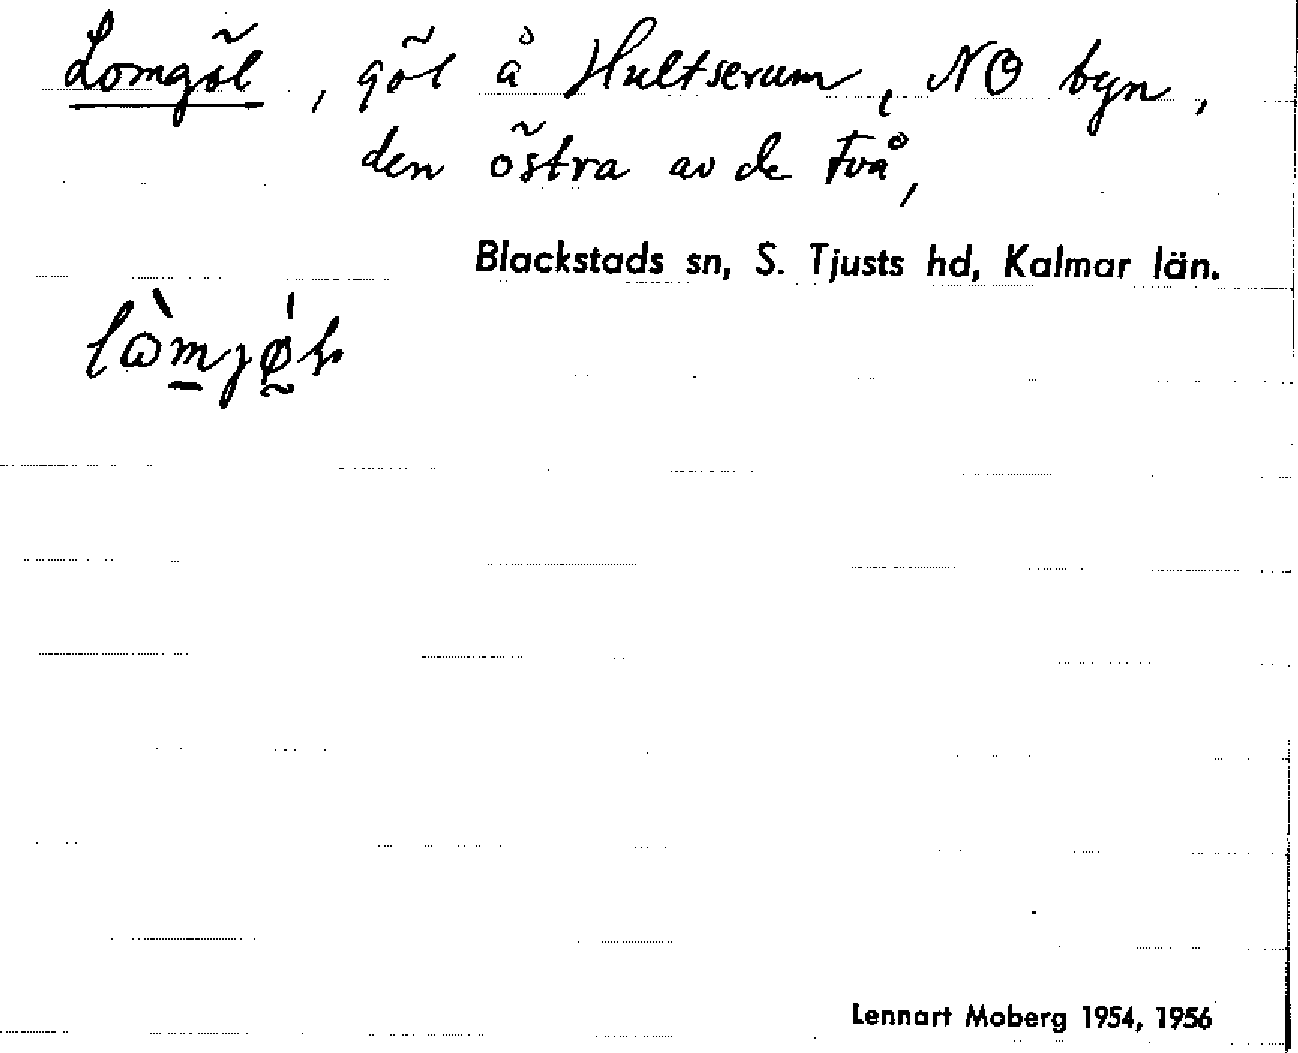 Lomgöl, göl å Hultserum, NO byn,
den östra av de två,
Blackstads sn, S. Tjusts hd, Kalmar län.
Lennart Moberg 1954, 1956